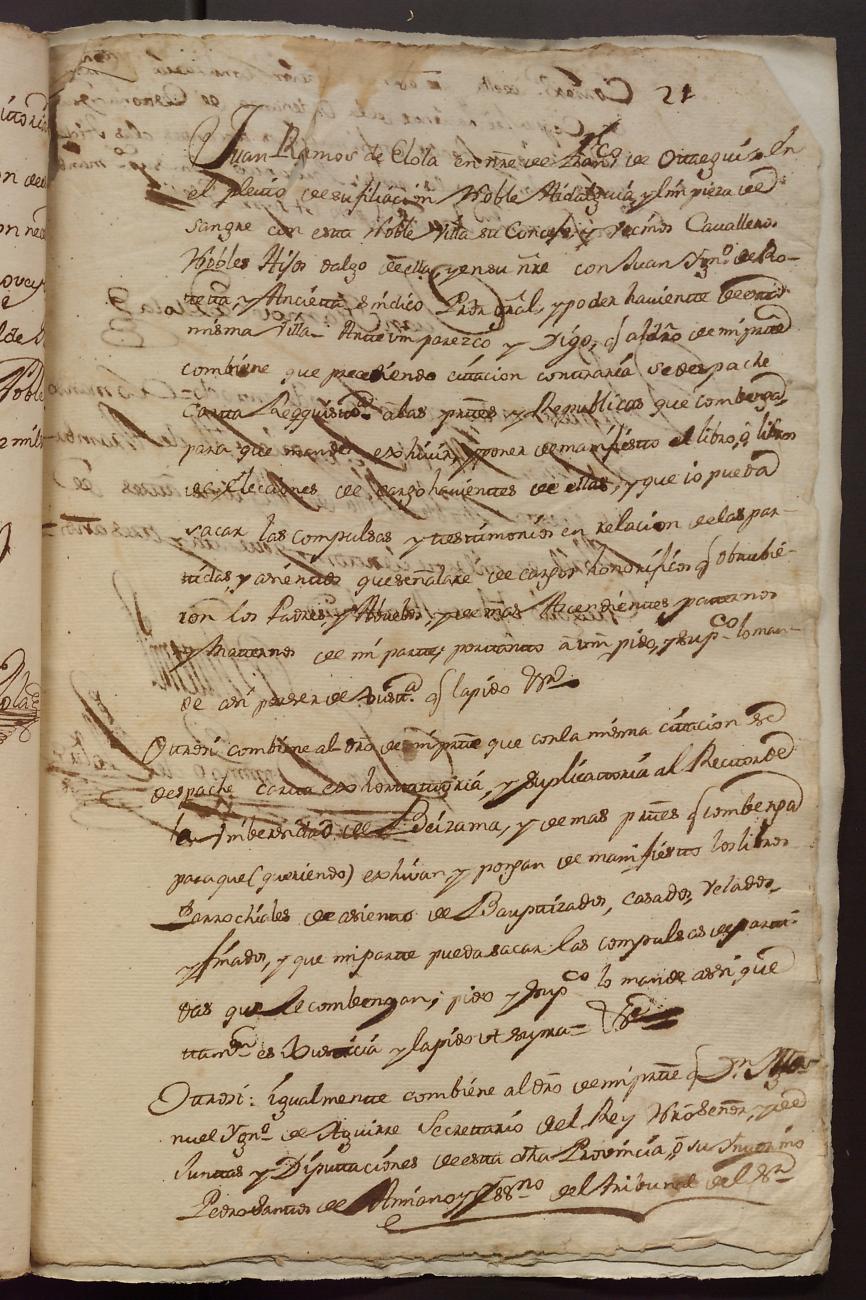 21
Juan Ramos de Elola en nre de Franco de Otaegui, En
el pleito de su filiacion Noble Hidalguia, y limpieza de
sangre con esta Noble Villa su Concejo, y vecinos Cavalleros
Nobles Hijos dalgo de ella, y en su nre con Juan Ygno de Ro-
teta, y Ancieta sindico Pror gral, y poder haviente de esta
misma Villa = Ante vm parezco y Digo, q al dro de mi parte
combiene que precediendo citacion contraria se despache
Carta Requisitoa a las partes, y Republicas que combenga,
para que manden exhivir, y poner de manifiesto el libro, o libros
de Elecciones de cargo havientes de ellas, y que io pueda
sacar las compulsas y testimonios en relacion de las par-
tidas, y asientos que señalare de cargos honorificos q obtubie-
ron los Padres, y Abuelos, y demas Ascendientes paternos
y Maternos de mi parte, por tanto a vm pido, y supco lo man-
de asi por ser de Justa q la pido &a
Otrosi combiene al dro de mi parte que con la misma citacion se
despache carta exhortatoria, y suplicatoria al Rector de
la Imbersidad de Beizama, y demas partes q combenga
para que (queriendo) exhivan, y pongan de manifiesto los libros
Parrochiales de asiento de Bauptizados, casados, Velados,
y finados, y que mi parte pueda sacar las compulsas de parti-
das que le combengan; pido y supco lo mande assi que
tamn es Justicia y la pido ut supra = &a
Otrosi: igualmente combiene al dro de mi parte q Dn Ma-
nuel Ygno de Aguirre Secretario del Rey Nro Señor, y de
Juntas y Diputaciones de esta dha Provincia, o su Interino
Pedro Santos de Amiano, y Essno del tribunal del Sr